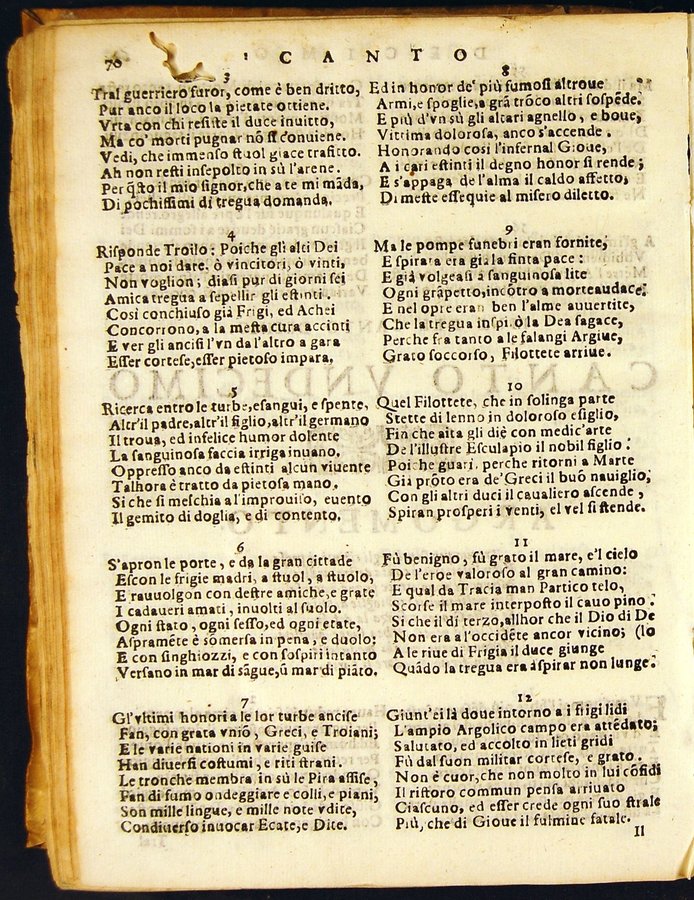 70 CANTO
3
Tra'l guerriero furor, come è ben dritto,
Pur anco il loco la pietate ottiene.
Vrta con chi resiste il duce inuitto,
Ma co' morti pugnar nō si conuiene.
Vedi, che immenso stuol giace trafitto.
Ah non resti insepolto in sù l'arene.
Per q̃sto il mio signor, che a te mi māda,
Di pochissimi dì tregua domanda.
4
Risponde Troilo: Poiche gli alti Dei
Pace a noi dare. ò vincitori, ò vinti,
Non voglion; diasi pur di giorni sei
Amica tregua a sepellir gli estinti.
Così conchiuso già Frigi, ed Achei
Concorrono, a la mesta cura accinti
E ver gli ancisi l'vn da l'altro a gara
Esser cortese, esser pietoso impara,
5
Ricerca entro le turbe, esangui, e spente,
Altr'il padre, altr'il figlio, altr'il germano
Il troua, ed infelice humor dolente
La sanguinosa faccia irriga inuano.
Oppresso anco da estinti alcun viuente
Talhora è tratto da pietosa mano.
Sì che si meschia al'improuiso, euento
Il gemito di doglia, e di contento.
6
S'apron le porte, e da la gran cittade
Escon le frigie madri, a stuol, a stuolo,
E rauuolgon con destre amiche, e grate
I cadaueri amati, inuolti al suolo.
Ogni stato, ogni sesso, ed ogni etate,
Aspramēte è sōmersa in pena, e duolo:
E con singhiozzi, e con sospiri intanto
Versano in mar di sāgue, ū mar di piāto.
7
Gl'vltimi honori a le lor turbe ancise
Fan, con grata vniō, Greci, e Troiani;
E le varie nationi in varie guise
Han diuersi costumi, e riti strani.
Le tronche membra in sù le Pira assise,
Fan di fumo ondeggiare e colli, e piani,
Son mille lingue, e mille note vdite,
Condiuerso inuocar Ecate, e Dite.
8
Ed in honor de' più fumosi altroue
Armi, e spoglie, a grā trōco altri sospēde.
E più d'vn sù gli altari agnello, e boue,
Vittima dolorosa, anco s'accende.
Honorando così l'infernal Gioue,
A i cari estinti il degno honor si rende;
E s'appaga de l'alma il caldo affetto,
Di meste essequie al misero diletto.
9
Ma le pompe funebri eran fornite,
E spirata era già la finta pace:
E già volgeasi a sanguinosa lite
Ogni grā petto, incōtro a morte audace:
E nel opre eran ben l'alme auuertite,
Che la tregua inspirò la Dea sagace,
Perche fra tanto a le falangi Argiue,
Grato soccorso, Filottete arriue.
10
Quel Filottete, che in solinga parte
Stette di lenno in doloroso esiglio,
Fin che aita gli diè con medic'arte
De l'illustre Esculapio il nobil figlio.
Poiche guarì, perche ritorni a Marte
Già prōto era de' Greci il buō nauiglio;
Con gli altri duci il caualiero ascende,
Spiran prosperi i venti, el vel si stende.
11
Fù benigno, fù grato il mare, e'l cielo
De l'eroe valoroso al gran camino:
E qual da Tracia man Partico telo,
Scorse il mare interposto il cauo pino.
Sì che il dì terzo, allhor che il Dio di De
Non era a l'occidēte ancor vicino; (lo
A le riue di Frigia il duce giunge
Quādo la tregua era aspirar non lunge.
12
Giunt'ei là doue intorno a i frigi lidi
L'ampio Argolico campo era attēdato;
Salutato, ed accolto in lieti gridi
Fù dal suon militar cortese, e grato.
Non è cuor, che non molto in lui cōfidi
Il ristoro commun pensa arriuato
Ciascuno, ed esser crede ogni suo strale
Più, che di Gioue il fulmine fatale.
Il